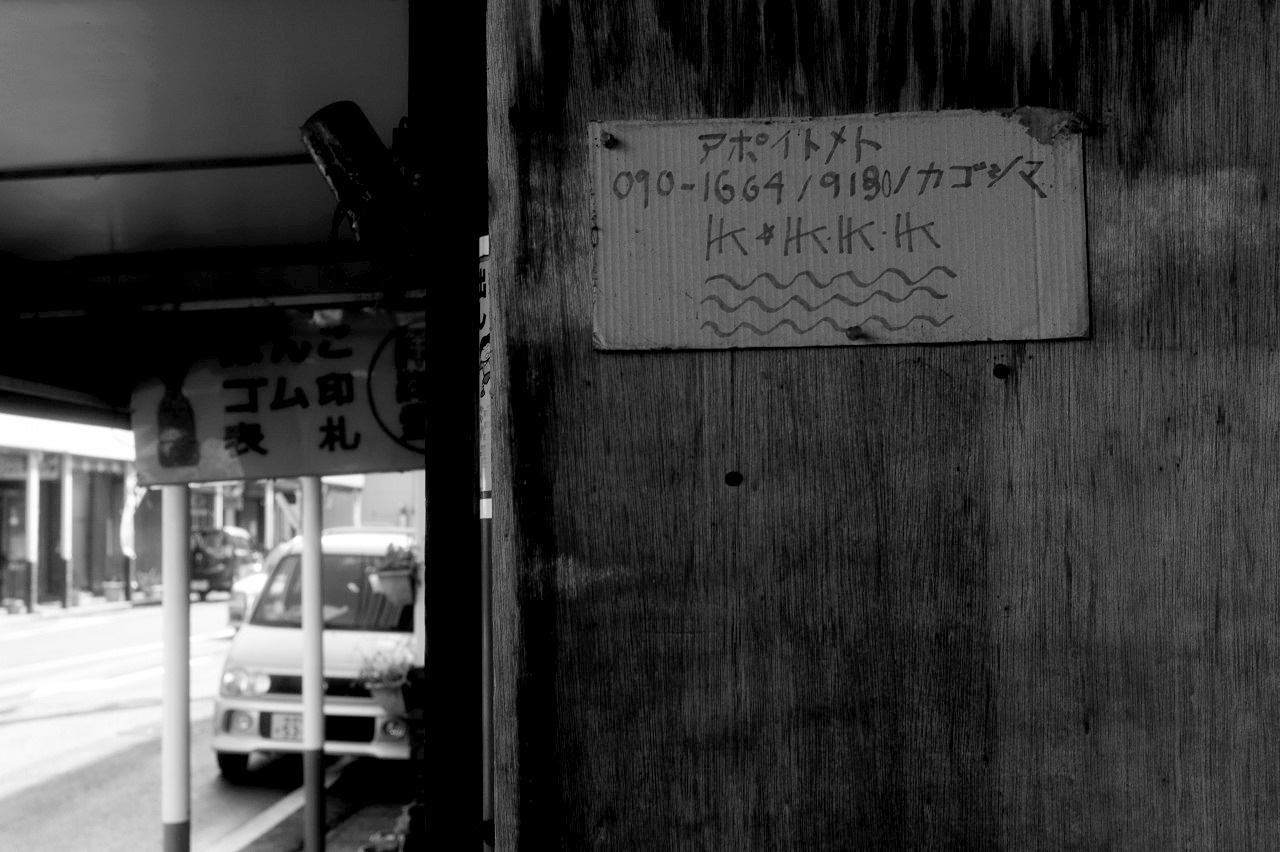 アポイトメト
090-1664/9180/カゴシマ
HK★HK・HK・HK
はんこ
ゴム印
表札